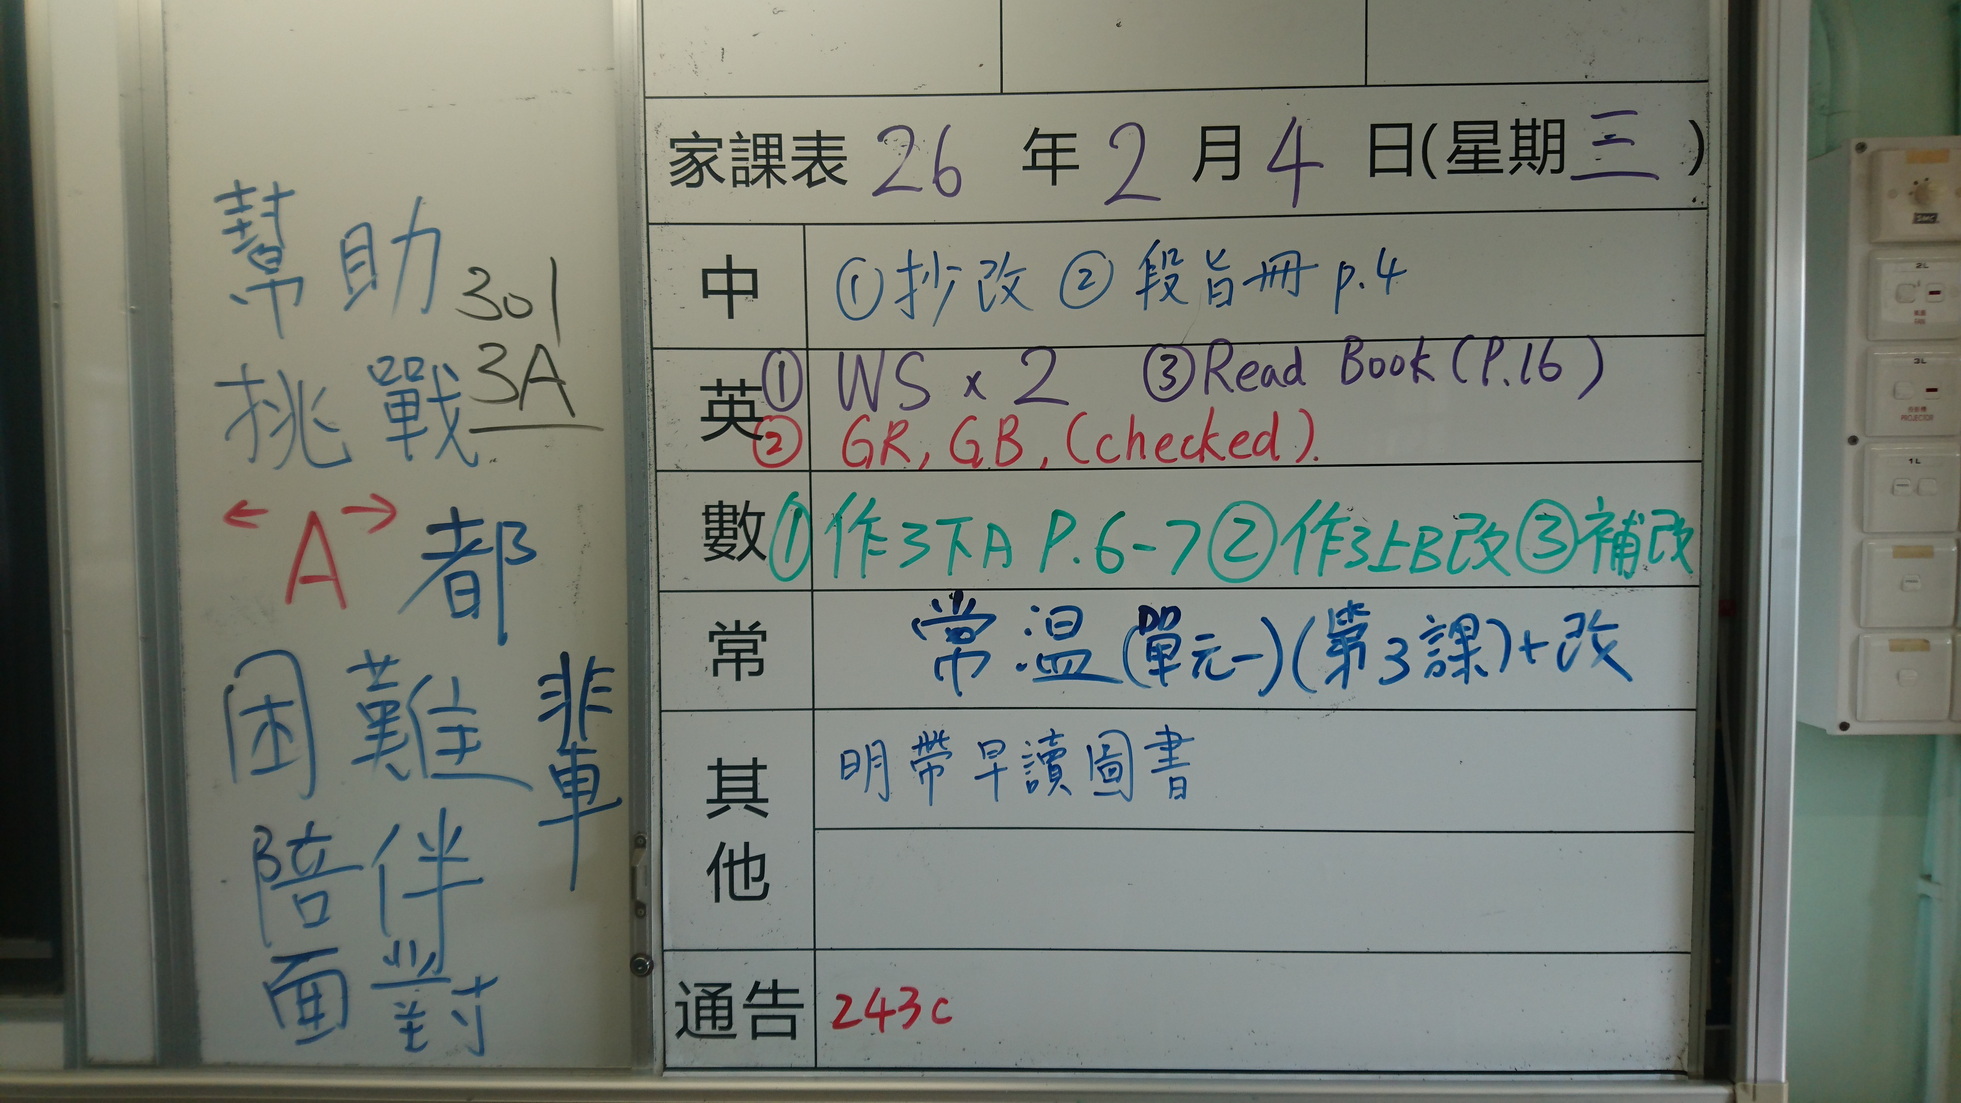 幫助
301
挑戰
3A
← A → 都
困難 輩
陪伴
面對
家課表 26 年 2 月 4 日(星期三)
中 ①抄改 ②段旨冊 p.4
英 ① WS × 2 ③Read Book (P.16)
② GR, GB, (checked).
數 ①作3下A P.6-7 ②作3上B改 ③補改
常 常溫(單元一)(第3課)+改
其他 明帶早讀圖書
通告 243c